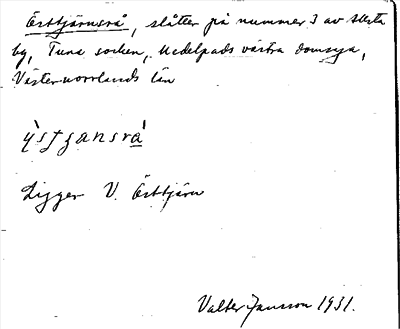 Östtjärnsrå, slåtter på nummer 3 av
by, Tuna socken, Medelpads västra domsaga,
Västernorrlands län
Ligger V. Östtjärn
Valter Jansson 1931.